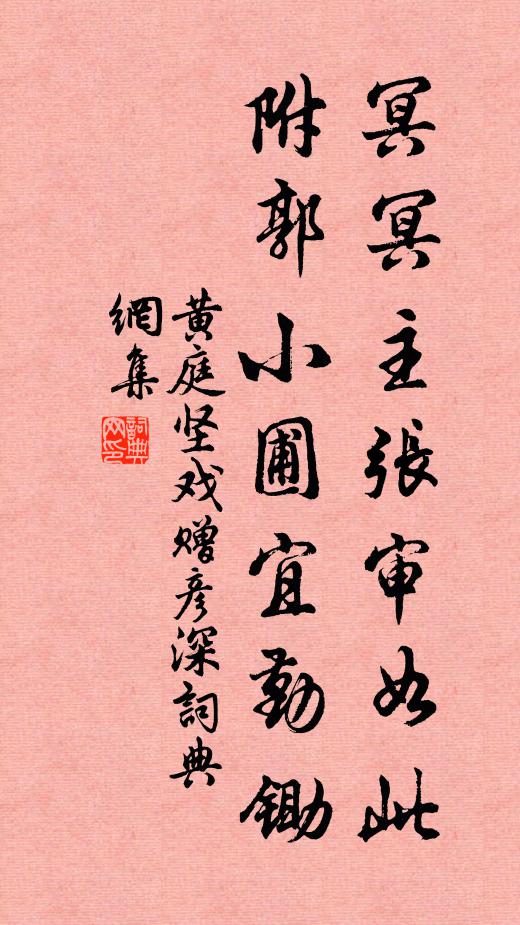 冥冥主張审如此
附郭小圃宜勤锄
黄庭坚戏赠彦深詞典
網集
詞典
网印